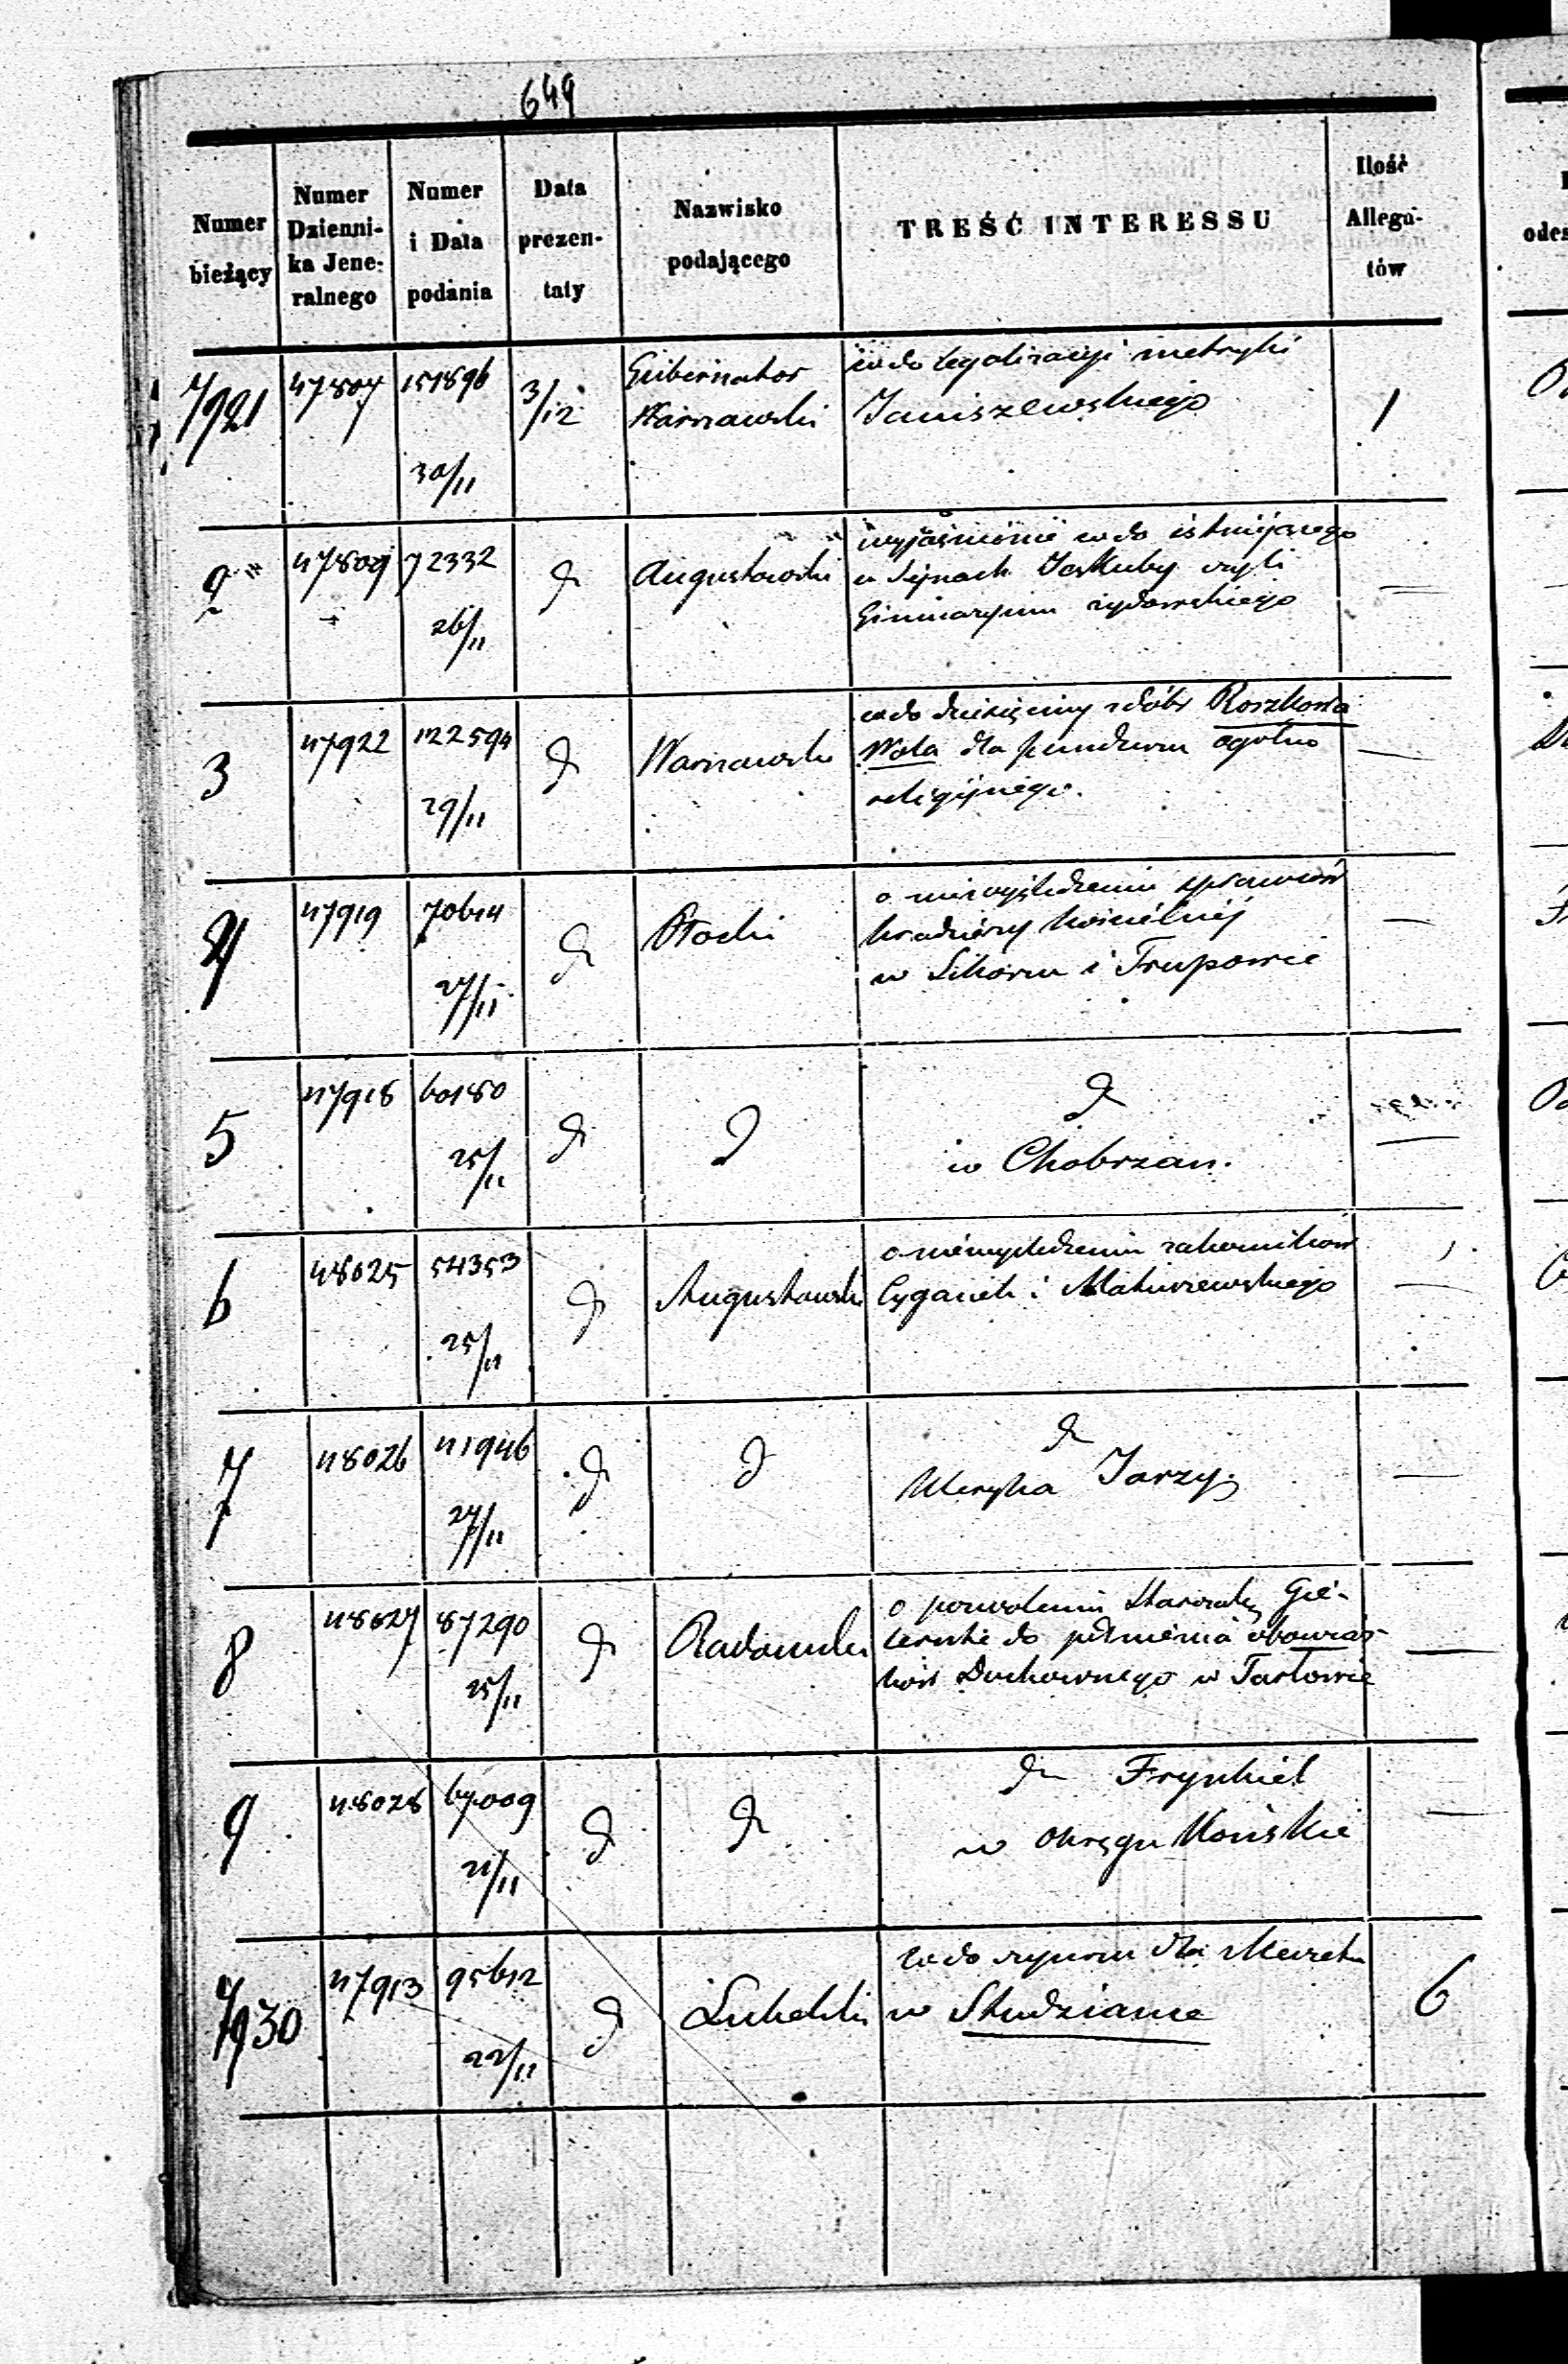 649
Numer bieżący | Numer Dzienni- ka Jene- ralnego | Numer i Data podania | Data prezen- taty | Nazwisko podającego | TREŚĆ INTERESSU | Ilość Allega- tów
7921 | 47807 | 151896 30/11 | 3/12 | Gubernator Warszawski | wdo legalizacyi metryki
Janiszewskiego | 1
2 | 47809 | 72332 26/11 | d | Augustowski | wyjaśnienie wdo istniejącego
w Sejnach Jeskuby czyli
Gimnazyum żydowskiego | —
3 | 47922 | 122594 29/11 | d | Warszawski | wdo dziesięciny z dóbr Roszkowa
Wola dla funduszu ogólno
religijnego. | —
4 | 47919 | 70614 27/11 | d | Płocki | o niewyśledzeniu sprawców
kradzieży kościelnej
w Sikorzu i Trupowie | —
5 | 47918 | 60180 25/11 | d | d | d
w Chobrzan. | —
6 | 48025 | 54353 25/11 | d | Augustowski | o niewyśledzeniu zakonników
Cyganek i Matuszewskiego | —
7 | 48026 | 41946 27/11 | d | d | d
Jarzy | —
8 | 48027 | 87290 25/11 | d | Radomski | o pozwoleniu
do pełnienia obowiąz-
ków Duchownego w Tarłowie | —
9 | 48028 | 67009 21/11 | d | d | d Frynkiel
w okręgu Końskie | —
7930 | 47913 | 95612 22/11 | d | Lubelski | wdo
w Studziance | 6